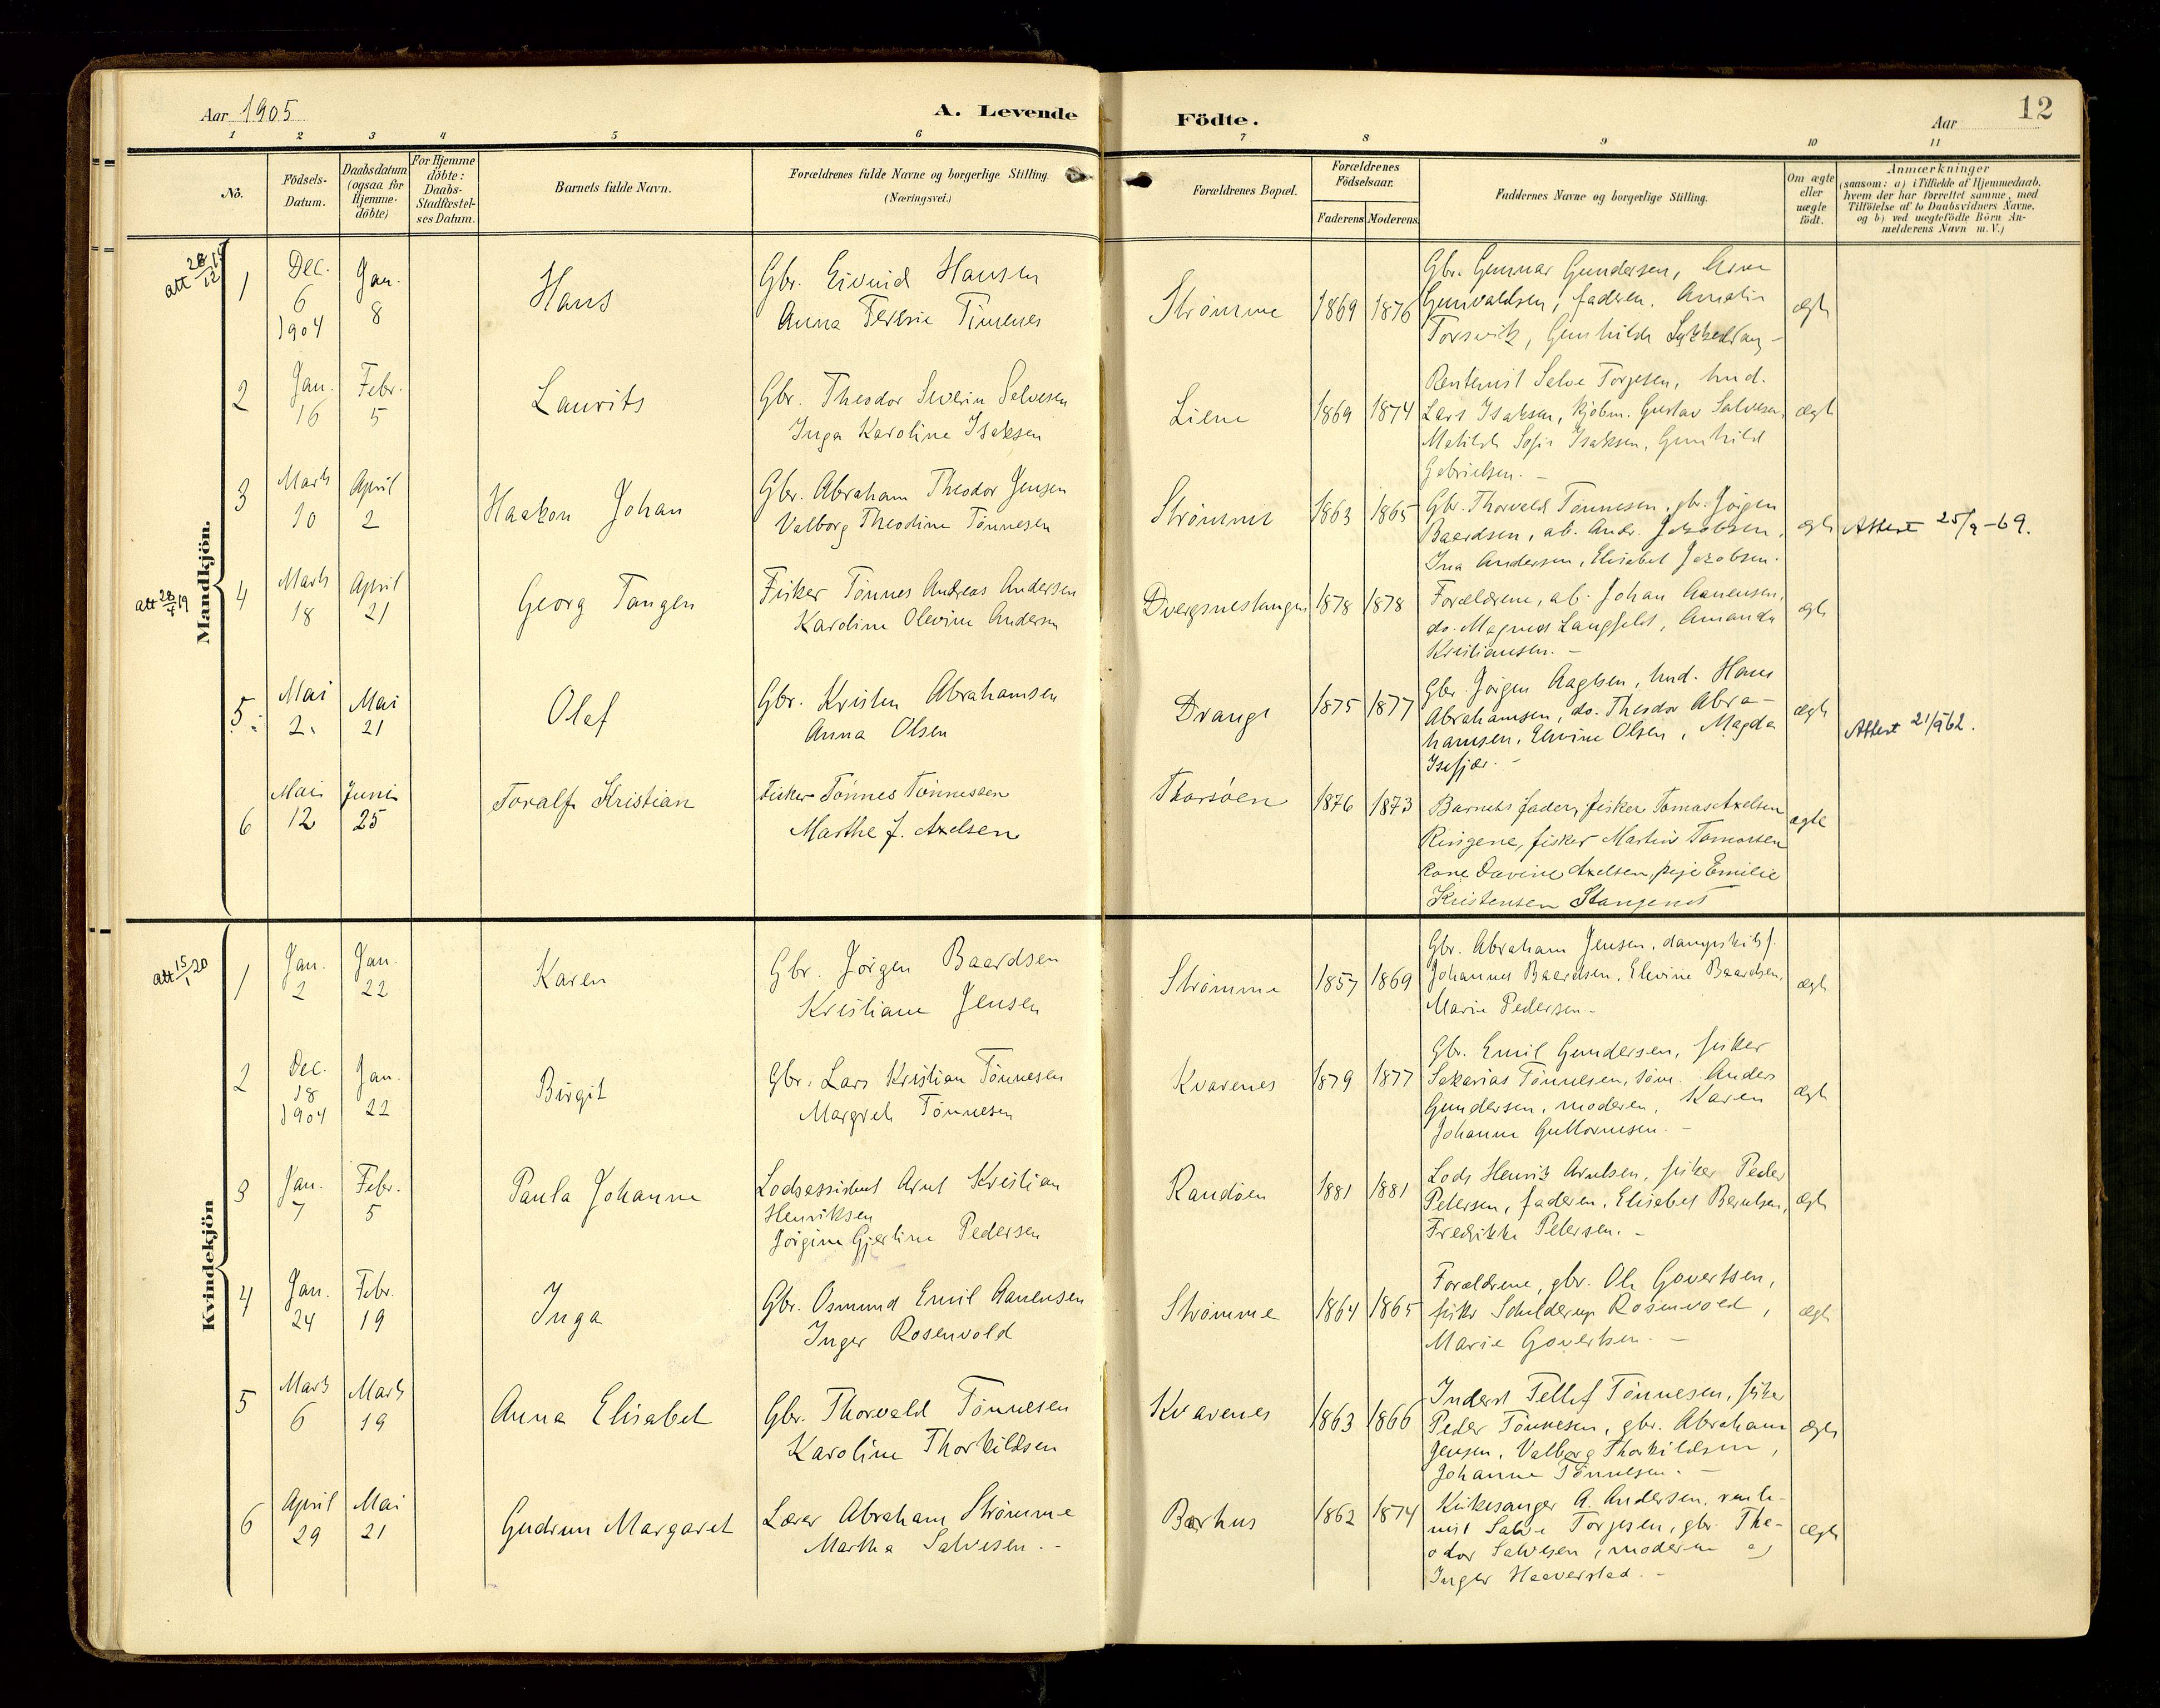 Aar 1905
A. Levende Födte.
Aar
12
1 2 3 4 5 6 7 8 9 10 11
No.
Födsels-Datum.
Daabsdatum (ogsaa for Hjemmedöbte)
For Hjemmedöbte: Daabs-Stadfæstelses Datum.
Barnets fulde Navn.
Forældrenes fulde Navne og borgerlige Stilling. (Næringsvei.)
Forældrenes Bopæl.
Forældrenes Födselsaar.
Faderens Moderens
Faddernes Navne og borgerlige Stilling.
Om ægte eller uægte födt.
Anmærkninger
(saasom: a) i Tilfælde af Hjemmedaab,
hvem der har forrettet samme, med
Tilföielse af to Daabsvidners Navne,
og b) ved uegtefödte Börn An-
melderens Navn m. V.)
Mandkjön.
att 28/12
1 Dec. 6 1904 Jan. 8
Hans
Gbr. Eivind Hansen
Anna Teresie Timenes
Strømme 1869 1876
Gbr. Gunnar Gundersen,
Gunvaldsen, faderen. Amalie
Torsvik, Gunhilde
ægte
2 Jan. 16 Febr. 5
Laurits
Gbr. Theodor Severin Salvesen
Inga Karoline Isaksen
Liene 1869 1874
Rentenist Salve Torjesen, Ind.
Lars Isaksen, kjøbm. Gustav Salvesen,
Matilde Sofie Isaksen, Gunhild
Gabrielsen. -
ægte
3 Marts 10 April 2
Haakon Johan
Gbr. Abraham Theodor Jensen
Valborg Theodine Tønnesen
Strømme 1863 1865
Gbr. Thorvald Tønnesen, gbr. Jørgen
Baardsen, ab. Andr. Jakobsen,
Ina Andersen, Elisabet Jakobsen.
ægte
Attest 25/9-69.
att 28/4 19
4 Marts 18 April 21
Georg Tangen
Fisker Tønnes Andreas Andersen
Karoline Olevine Andersen
Dvergsnestangen 1878 1878
Forældrene, ab. Johan Aanensen,
do. Magnus Langfeldt, Amanda
Kristiansen. -
ægte
5 Mai 2. Mai 21
Olaf
Gbr. Kristen Abrahamsen
Anna Olsen
Drange 1875 1877
Gbr. Jørgen Aagesen, Ind. Hans
Abrahamsen, do. Theodor Abra-
hamsen, Elvine Olsen, Magda
Isefjær. -
ægte
Attest 21/9 62.
6 Mai 12 Juni 25
Toralf Kristian
Fisker Tønnes Tønnessen
Marthe J. Axelsen
Tharsøen 1876 1873
Barnets fader, fisker Tomas Axelsen
Ringene, fisker Martin Tomassen
kone Davine Axelsen, pige Emilie
Kristensen Stangenes
ægte
Kvindekjön
att 15/1 20
1 Jan. 2 Jan. 22
Karen
Gbr. Jørgen Baardsen
Kristiane Jensen
Strømme 1857 1869
Gbr. Abraham Jensen, dampskibsf.
Johannes Baardsen, Elevine Baardsen,
Marie Pedersen -
ægte
2 Dec. 18 1904 Jan. 22
Birgit
Gbr. Lars Kristian Tønnesen
Margrete Tønnesen
Kvarenes 1879 1877
Gbr. Emil Gundersen, fisker
Sakarias Tønnesen, søm. Anders
Gundersen, moderen, Karen
Johanne Guttormsen. -
ægte
3 Jan. 7 Febr. 5
Paula Johanne
Lodsassistent Arnt Kristian
Henriksen
Jørgine Gjertine Pedersen
Randøen 1881 1881
Lods Henrik Arntsen, fisker Peder
Petersen, faderen, Elisabet Berntsen,
Fredrikke Petersen. -
ægte
4 Jan. 24 Febr. 19
Inga
Gbr. Osmund Emil Aanensen
Inger Rosenvold
Strømme 1864 1865
Forældrene, gbr. Ole Govertsen,
fisker Schelderup Rosenvold,
Marie Govertsen. -
ægte
5 Marts 6 Marts 19
Anna Elisabet
Gbr. Thorvald Tønnesen
Karoline Thorkildsen
Kvarenes 1863 1866
Inderst Tellef Tønnesen, fisker
Peder Tønnesen, gbr. Abraham
Jensen, Valborg Thorkildsen,
Johanne Tønnesen. -
ægte
6 April 29 Mai 21
Gudrun Margaret
Lærer Abraham Strømme
Martha Salvesen. -
Barhus 1862 1874
Kirkesanger A. Andersen, rente-
nist Salve Torjesen, gbr. The-
odor Salvesen, moderen og
Inger Haaverstad. -
ægte